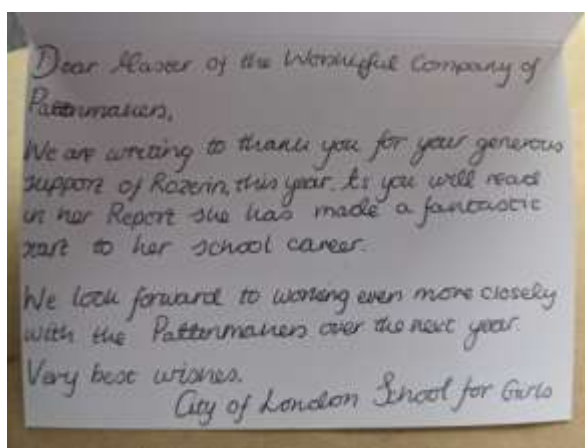 Dear Master of the Worshipful Company of
Pattenmakers,
We are writing to thank you for your generous
support of Rozerin, this year. As you will read
in her Report she has made a fantastic
start to her school career.
We look forward to working even more closely
with the Pattenmakers over the next year.
Very best wishes,
City of London School for Girls